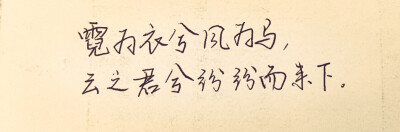 霓为衣兮风为马,
云之君兮纷纷而来下.